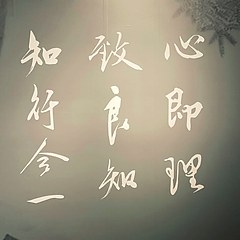 心即理
致良知
知行合一